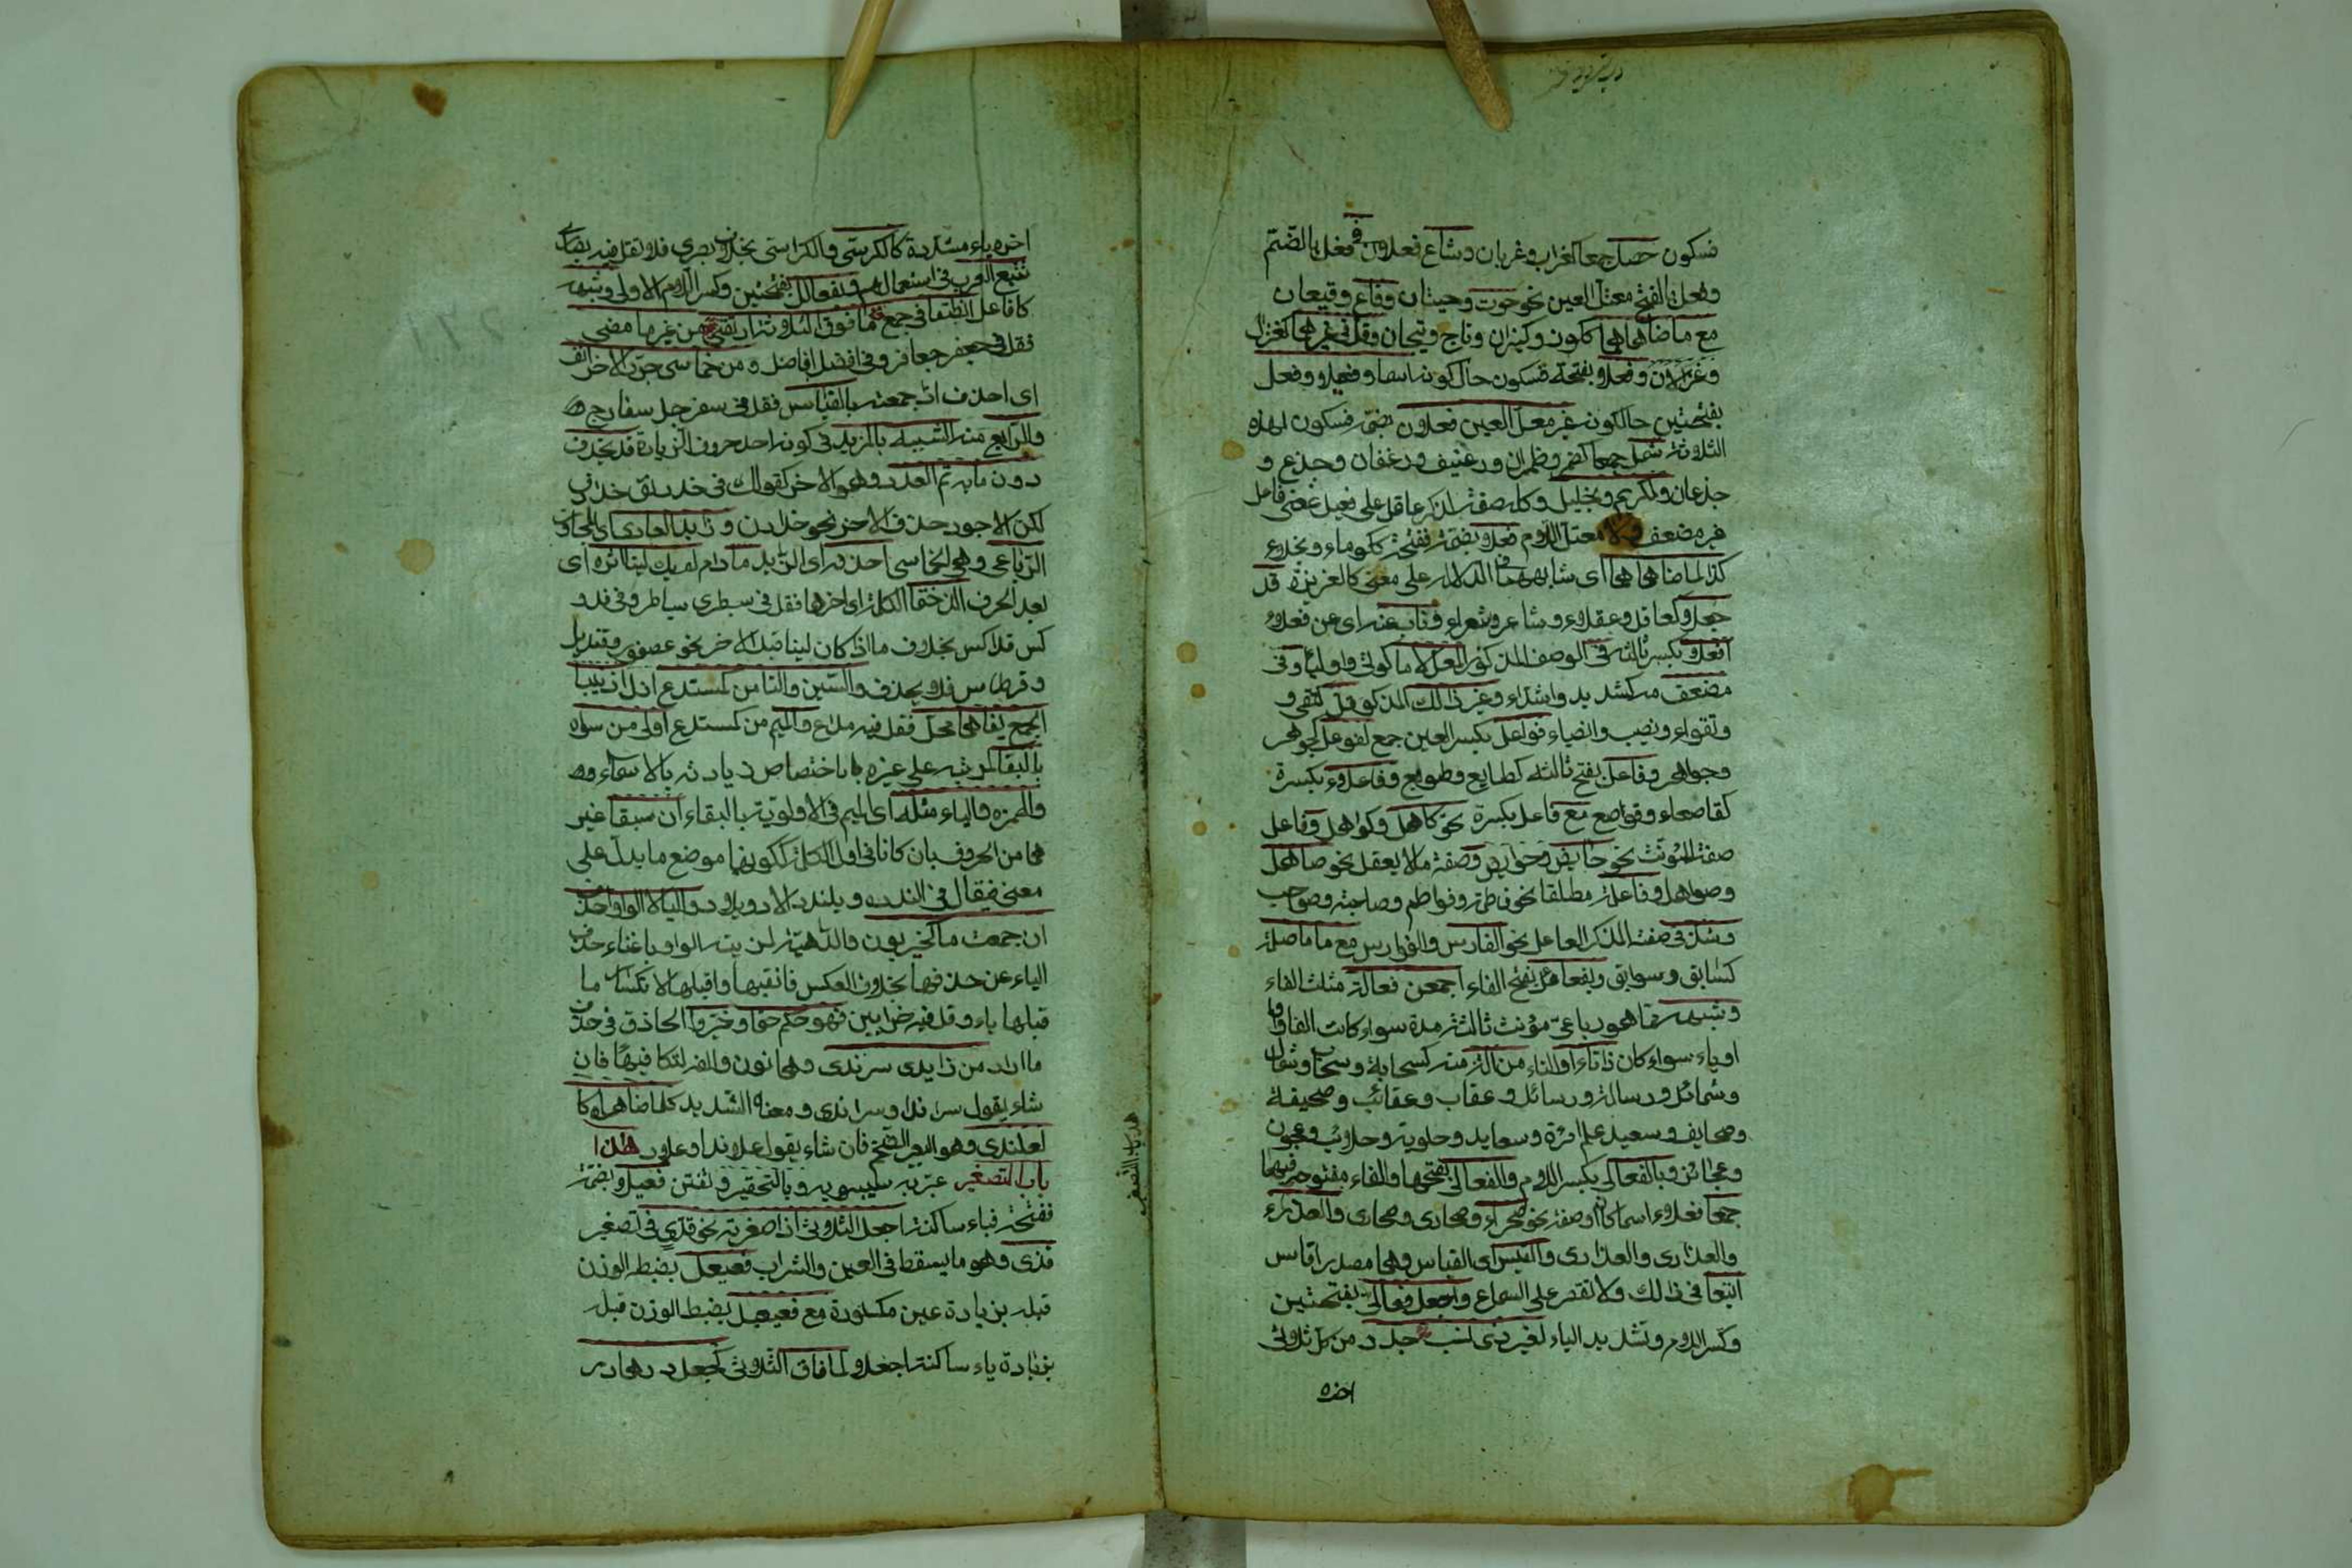 فسكون حصل جمعا كغراب وغربان وشاع فعلان في فعل بالضم
وفعل بالفتح معتل العين نحو حوت وحيتان وقاع وقيعان
مع ما ضاهاهما ككوز وكيزان وتاج وتيجان وقل في غيرهما كغزال
وغزلان وفعلا بفتحة فسكون حال كونه اسما وفعيلا وفعل
بفتحتين حالكونه غير معل العين فعلان بضمة فسكون لهذه
الثلاثة شمل جمعا كظهر وظهران ورغيف ورغفان وجذع و
جذعان ولكريم وبخيل وكل صفة لمذكر عاقل على فعيل بمعنى فاعل
غير مضعف ولا معتل اللام فعلا بضمة ففتحة ككرماء وبخلاء
كذا لما ضاهاهما اى شابههما في الدلالة على معنى كالغريزة قد
جعلا كعاقل وعقلاء وشاعر وشعراء وناب عنه اى عن فعلاء
افعلاء بكسر ثالثه في الوصف المذكور المعل لاما كولى واوليا وفى
مضعف كشديد واشداء وغير ذالك المذكور قل كتقى و
وتقواء ونصيب وانصباء فواعل بكسر العين جمع لفوعل كجوهر
وجواهر وفاعل بفتح ثالثه كطابع وطوابع وفاعلاء بكسرة
كقاصعاء وقواصع مع فاعل بكسرة نحو كاهل وكواهل وفاعل
صفة المؤنث نحو حايض وحوايض وصفة ما لا يعقل نحو صاهل
وصواهل وفاعلة مطلقا نحو فاطمة وفواطم وصاحبة وصواحب
وشذ في صفة المذكر العاقل نحو الفارس والفوارس مع ما ماثله
كسابق وسوابق وبفعائل بفتح الفاء اجمعن فعالة مثلث الفاء
وشبهه مما هو رباعى مؤنث ثالثه مدة سواء كانت الفا او واوا
او ياء سواء كان ذا تاء او التاء من الثه منه كسحابة وسحائب وشمال
وشمائل ورسالة ورسائل وعقاب وعقائب وصحيفة
وصحايف وسعيد علم امرأة وسعايد وحلوبة وحلائب وعجوز
وعجائز وبالفعالى بكسر اللام والفعالى بفتحها والفاء مفتوحة فيهما
جمعا فعلاء اسما كان او صفة نحو صحراء وصحارى وصحارى والعذراء
والعذارى والعذارى والقيس اى القياس وهما مصدر اقاس
اتبعا في ذالك ولا تقتصر على السماع واجعل فعالى بفتحتين
وكسر اللام وتشديد الياء لغير ذى نسب جدد من كل ثلاثى
اخره
اخره ياء مشددة كالكرسى والكراسى بخلاف بصرى فلا تقل فيه بصارى
تتبع العرب في استعمالهم وبفعالل بفتحتين وكسر اللام الاولى وشبهه
كافاعل انطقا في جمع ما فوق الثلاثة ارتقى من غير ما مضى
فقل في جعفر جعافر وفي افضل افاضل ومن خماسى جرد الاخر انف
اى احذف ان جمعته بالقياس فقل في سفرجل سفارج
والرابع منه الشبيه بالمزيد في كونه احد حروف الزيادة قد يحذف
دون ما به تم العدد وهو الاخر كقولك في خدرنق خدارق
لكن الاجود حذف الاخر نحو خدارن وزايد العادى اى المجاوز
الرباعى وهو الخماسى احذفه اى الزايد ما دام لم يك لينا اثره اى
بعد الحرف الذ ختما الكلمة اى اخرها فقل في سبطرى سباطر وفى فدو
كس فداكس بخلاف ما اذا كان لينا قبل الاخر نحو عصفور وقنديل
وقرطاس فلا يحذف والسين والتا من كمستدع ازل اذ ببنا
الجمع بقاهما مخل فقل فيه مداع والميم من كمستدع اولى من سواه
بالبقا لمزيته على غيره باختصاص زيادته بالاسماء
والهمزه والياء مثله اى الميم في الاولوية بالبقاء ان سبقا غير
هما من الحروف بان كانا في اول الكلمة لكونهما موضع ما يدل على
معنى فيقال في الندد ويلندد الادد ويلادد والياء لا الواو احذف
ان جمعت ما كحيزبون والداهية لمن بقاء الواو باغناء حذف
الياء عن حذفها بخلاف العكس فانقبها واقبلها لانكسار ما
قبلها ياء وقل فيه حزابين فهو حكم حتما وخيروا الحاذق في حذف
ما اراد من زايدى سرندى وهما نون والفه لتكافيهما فان
شاء يقول سراند او سراندى ومعناه الشديد كلما ضاهاه كا
لعلندى وهو البعير الضخم فان شاء يقول علاند او علاد هذا
باب التصغير عبر به سيبويه وبالتحقير وتفنن فعيلا بضمة
ففتحة فياء ساكنة اجعل الثلاثى اذا صغرته نحو قذى في تصغير
قذى وهو ما يسقط في العين والشراب فعيعل بضبط الوزن
قبله بزيادة عين مكسورة مع فعيعيل بضبط الوزن قبله
بزيادة ياء ساكنة اجعلا لما فاق الثلاثى كجعل درهما در
هذا باب التصغير